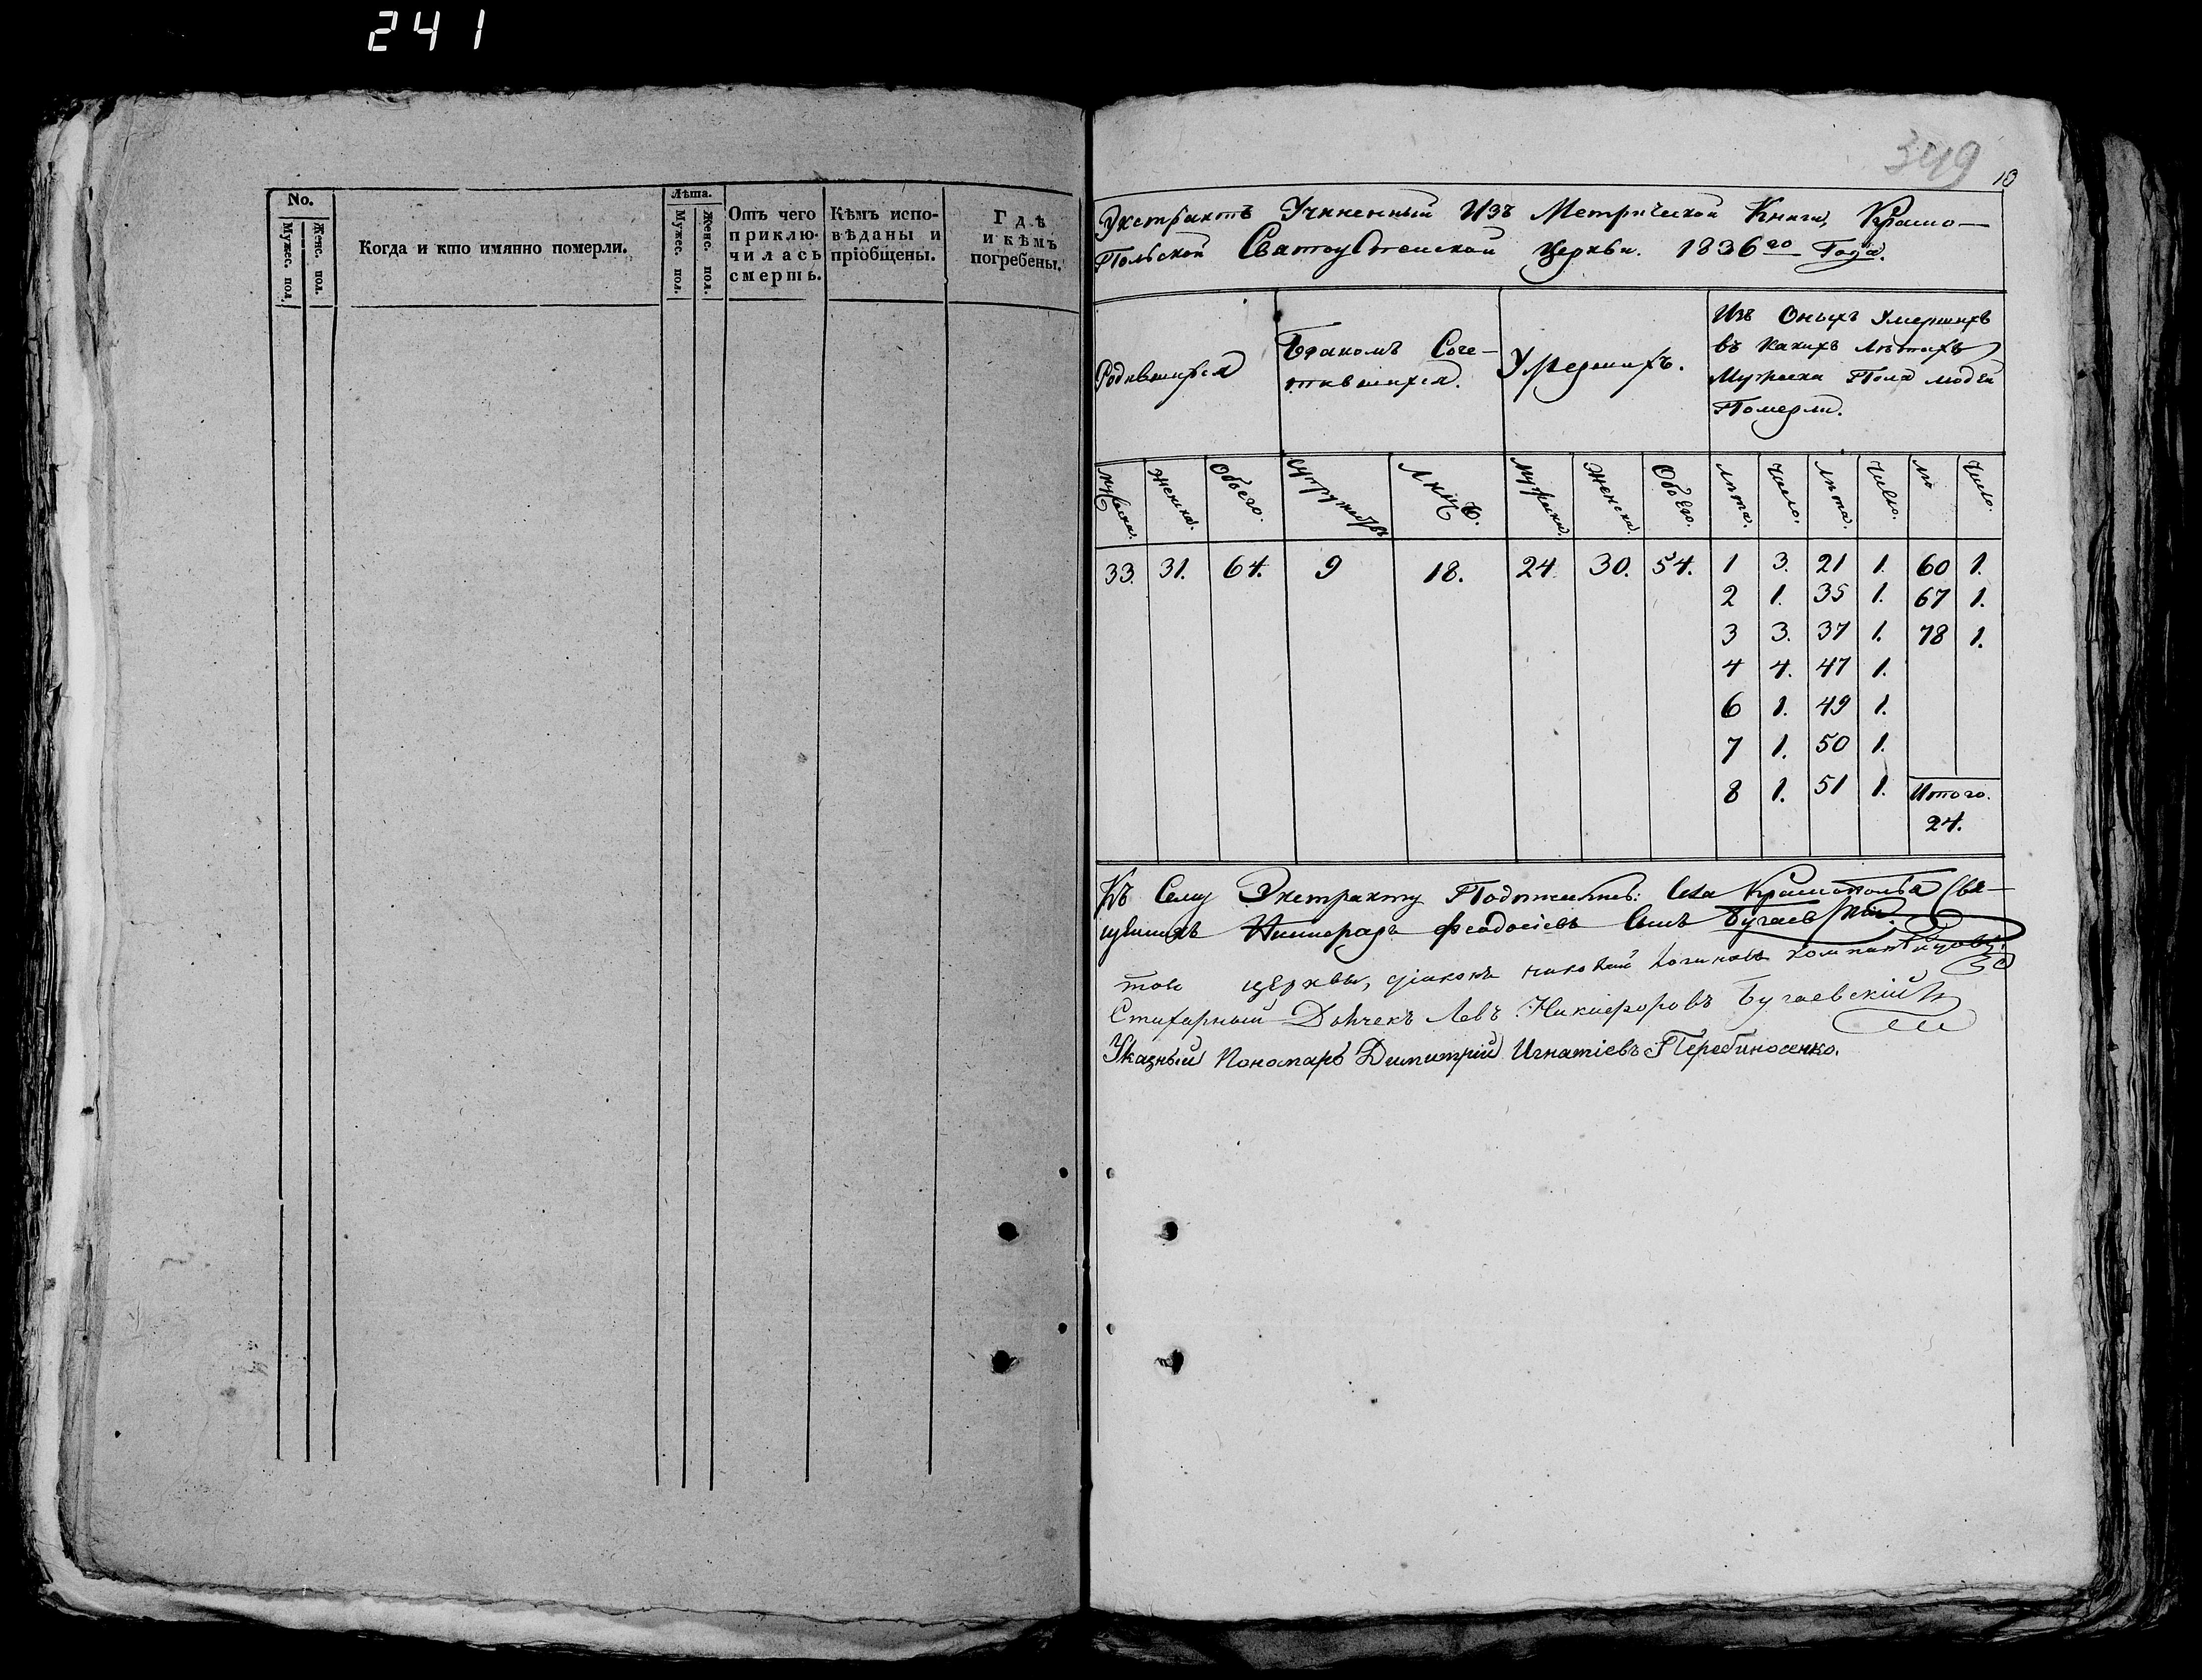 241
No.
Мужес. пол.
Женс. пол.
Когда и кто имянно померли.
Лѣта.
Мужес. пол.
Женс. пол.
Отъ чего
приклю-
чилась
смерть.
Кѣмъ испо-
вѣданы и
пріобщены.
Гдѣ
и кѣмъ
погребены.
349
10
Экстрактъ Учиненный Изъ Метрической Книги, Крамо-
Польской Церкви. 1836го Года.
Родившихся
Бракомъ Соче-
тавшихся.
Умершихъ.
Изъ Оныхъ Умершихъ
въ какихъ лѣтахъ
Мужеска Пола людей
Померли.
Мужеска.
Женска.
Обоего.
Супружествъ
Лицъ.
Мужеска.
Женска.
Обоего.
лѣта.
Число.
лѣта.
Число.
лѣ
Число.
33. 31. 64. 9 18. 24. 30. 54. 1 3. 21 1. 60 1.
2 1. 35 1. 67 1.
3 3. 37 1. 78 1.
4 4. 47 1.
6 1. 49 1.
7 1. 50 1.
8 1. 51 1.
Итого.
24.
Къ Сему Экстракту Свя-
щенникъ Никифоръ Феодосіевъ Сынъ Бугаевскій.
той церкви, діаконъ
Стихарный Дьячекъ Левъ Никифоровъ Бугаевскій
Указный Пономарь Димитрій Игнатіевъ Перебиносенко.